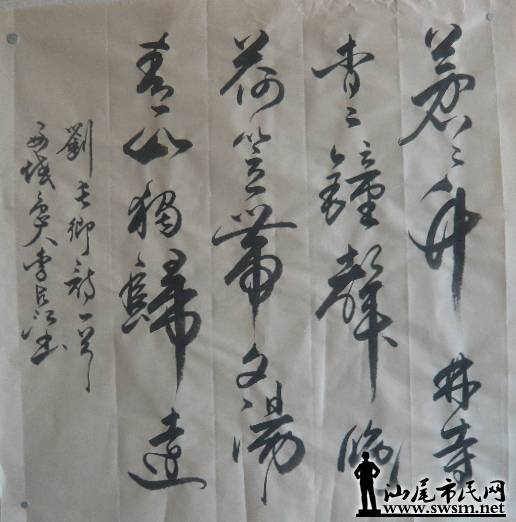 蒼〻竹林寺
杳〻鐘聲晚
荷笠帶夕陽
青山獨歸遠
劉長卿詩一首
人李江書
汕尾市民网
www.swsm.net